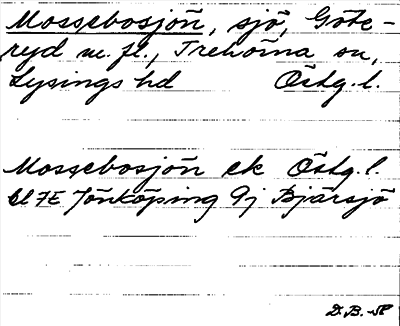 Mossebosjön, sjö, Göte-
ryd m. fl., Trehörna sn,
Lysings hd Östg. l.
Mossebosjön ek Östg. l.
bl 7E Jönköping 9j Bjärsjö
D.B. -58